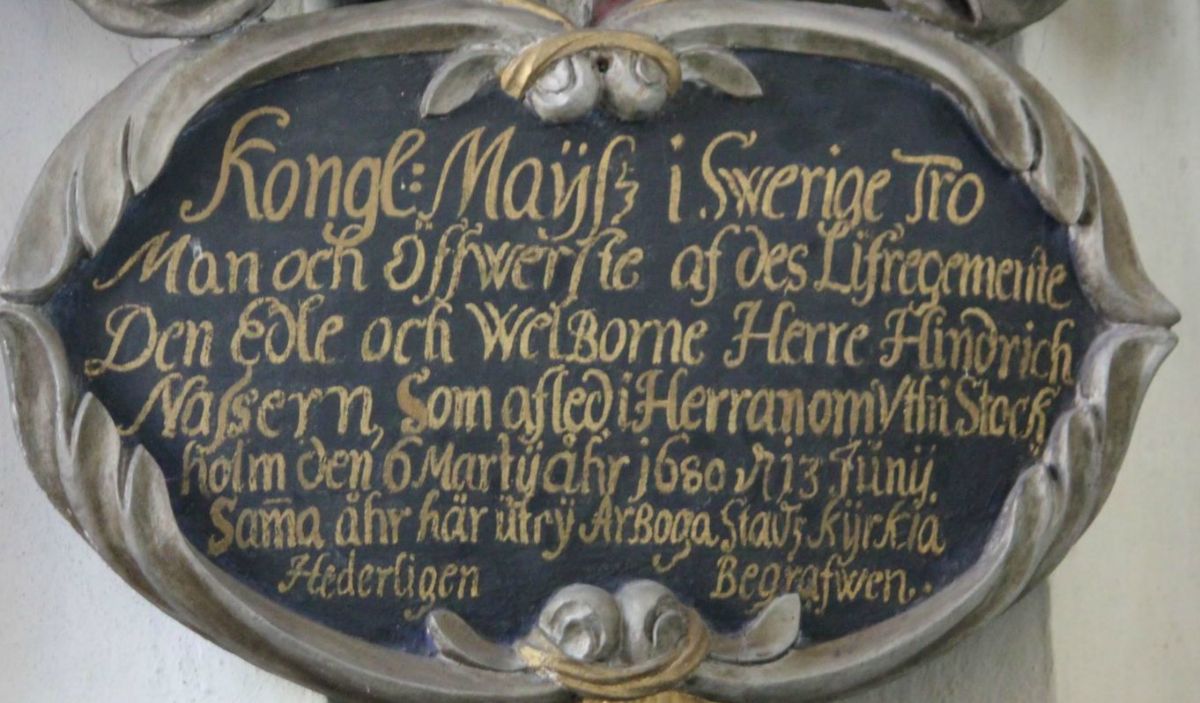 Kongl: Maÿſtz i Swerige Tro
Man och Öffwerſte af des Lifregemente
Den Edle och WelBorne Herre Hindrich
Naſsern, Som afled i Herranom Vthi Stock
holm den 6 Martij åhr 1680 13 Junij.
Sam̄a åhr här uti Arboga Stadz Kÿrkia
Hederligen Begrafwen.